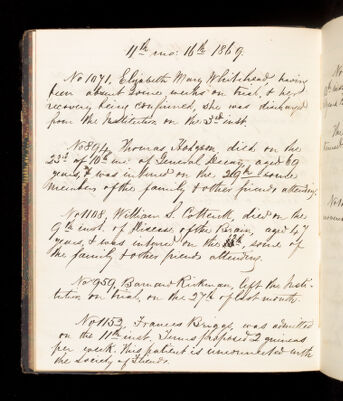 11th mo: 16th 1869
No 1071, Elizabeth Mary Whitehead, having
been absent some weeks on trial, & her
recovery being confirmed, she was discharged
from the Institution on the 3rd inst.
No 894, Thomas Hodgson, died on the
23rd of 10th mo: of General Decay, aged 69
years, & was interred on the 26th some
members of the family & other friends attending.
No 1108, William S. died on the
9th inst. of Disease of the Brain, aged 47
years, & was interred on the some of
the family & other friends attending.
No 959, Barnard Rickman, left the Insti-
tution on trial, on the 27th of last month.
No 1152, Frances Briggs, was admitted
on the 11th inst. Terms proposed 2 guineas
per week. This patient is unconnected with
the Society of Friends.